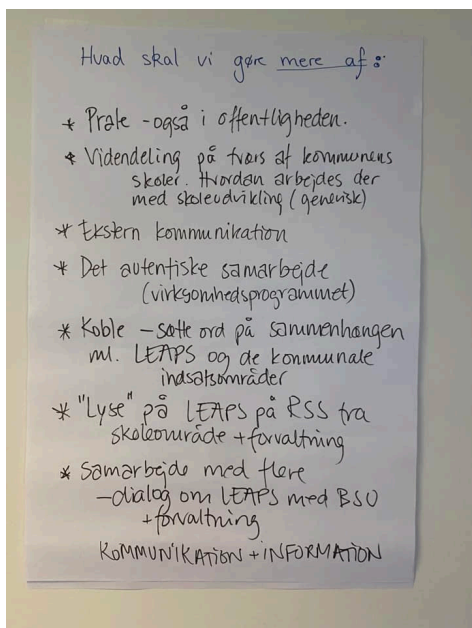 Hvad skal vi gøre mere af:
* Prale - også i offentligheden.
* Videndeling på tværs af kommunens
skoler. Hvordan arbejdes der
med skoleudvikling (generisk)
* Ekstern kommunikation
* Det autentiske samarbejde
(virksomhedsprogrammet)
* Koble - sætte ord på sammenhængen
ml. LEAPS og de kommunale
indsatsområder
* "Lyse" på LEAPS på RSS fra
skoleområde + forvaltning
* Samarbejde med flere
- dialog om LEAPS med BSU
+ forvaltning
KOMMUNIKATION + INFORMATION